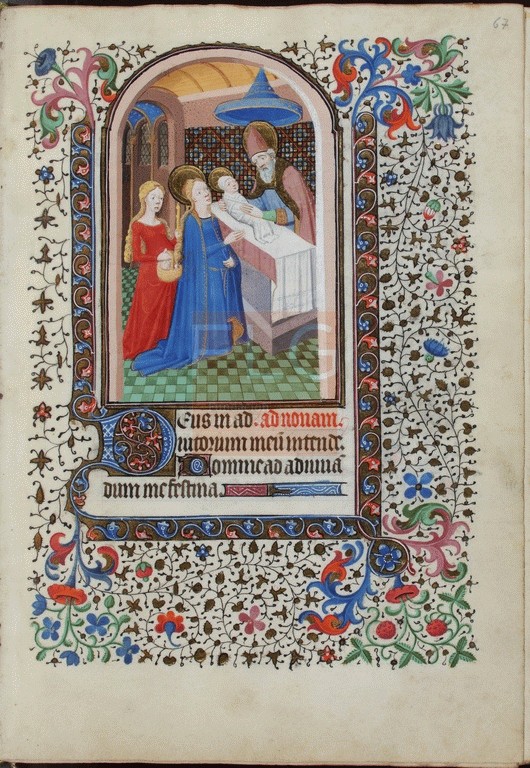 67
Deus in ad. ad nonam.
iutorium meū intende
Domine ad adiuuā
dum me festina.